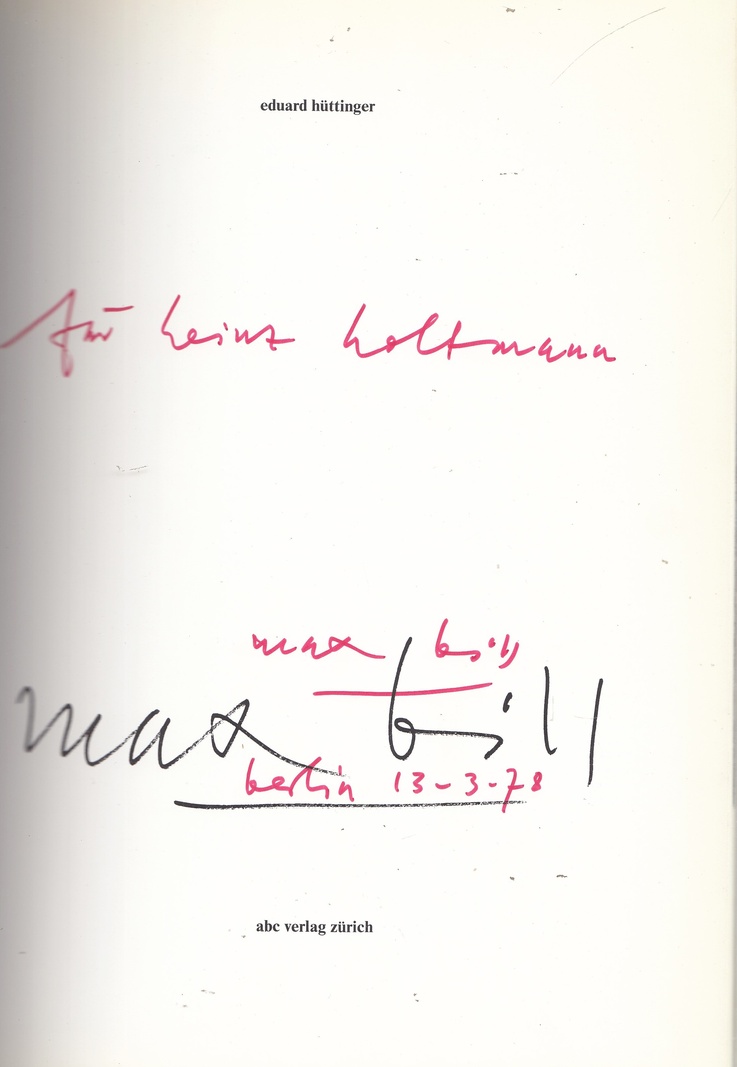 eduard hüttinger
für heinz holtmann
max bill
max bill
berlin 13-3-78
abc verlag zürich